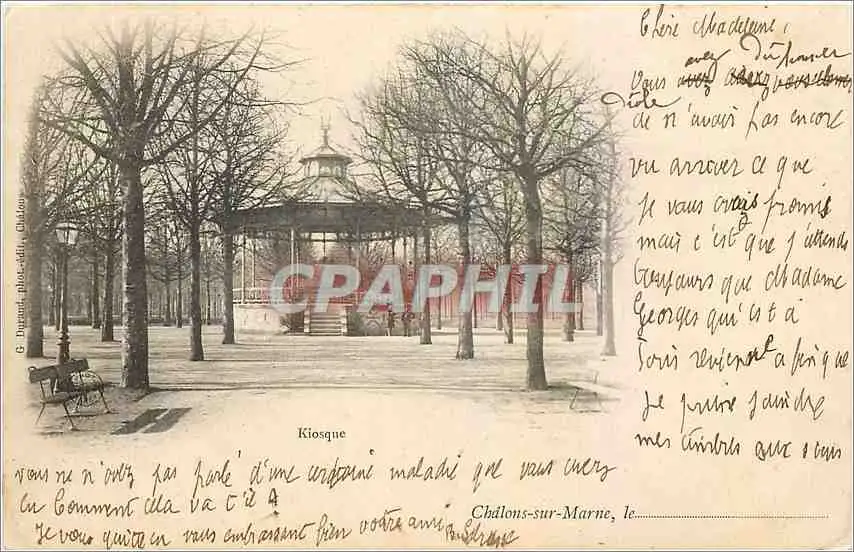 Chère Madeleine,
avez Dû trouver
Vous avez
drôle
de n'avoir pas encore
vu arriver ce que
je vous avais promis
mais c'est que j'attends
toujours que Madame
Georges qui est à
Paris revienne afin que
je puisse joindre
mes timbres aux siens
vous ne n'avez pas parlé d'une certaine maladie que vous aviez
eu Comment cela va t'il ?
Je vous quitte en vous embrassant bien votre amie
Kiosque
Châlons-sur-Marne, le
G. Durand, phot.-édit., Châlons
CPAPHIL